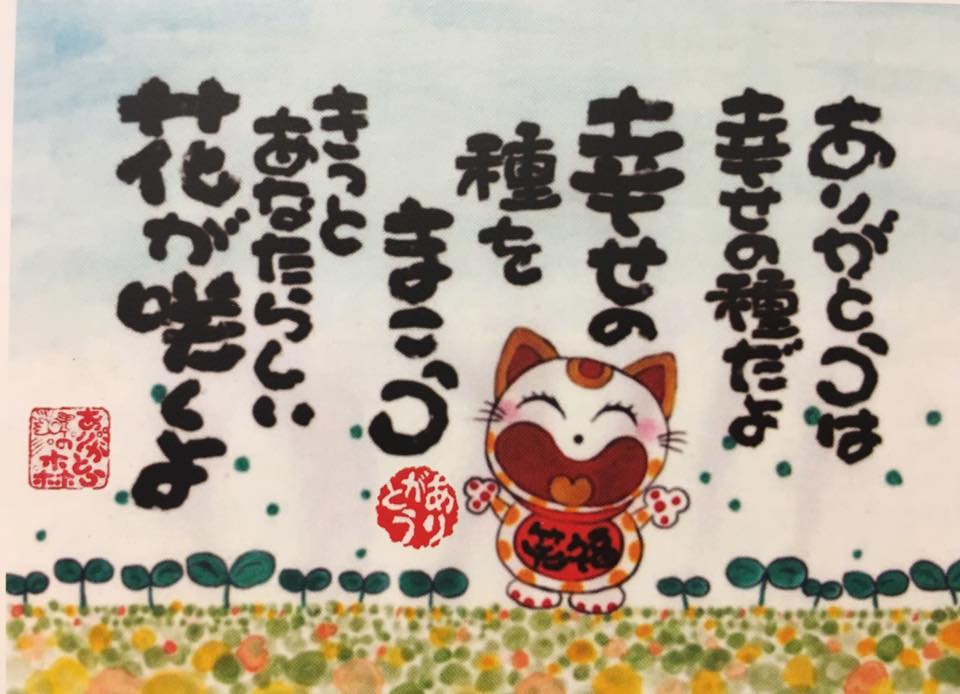 ありがとうは
幸せの種だよ
幸せの
種を
まこう
きっと
あなたらしい
花が咲くよ
笑福
ありがとう
ありがとう
の森